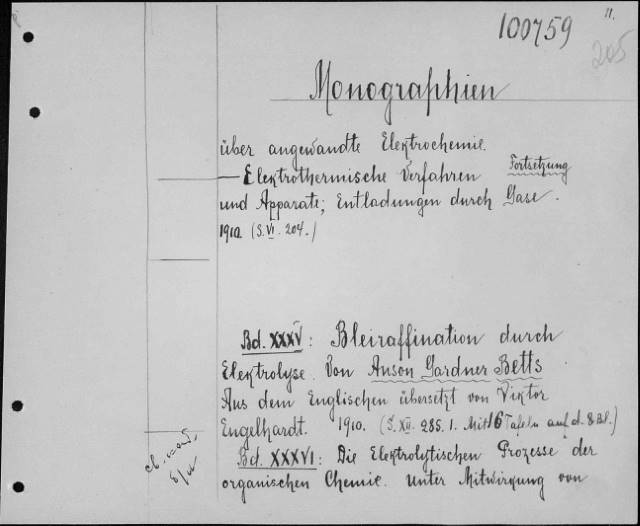 11.
100759
205
Monographien
über angewandte Elektrochemie.
— Elektrothermische Verfahren Fortsetzung
und Apparate; Entladungen durch Gase.
1910 (S. VI. 204.)
Bd. XXXV: Bleiraffination durch
Elektrolyse. Von Anson Gardner Betts
Aus dem Englischen übersetzt von Viktor
Engelhardt. 1910. (S. XII. 285. 1. Mit 16 Tafeln auf d. 8 Bl.)
Bd. XXXVI: Die Elektrolytischen Prozesse der
organischen Chemie. Unter Mitwirkung von